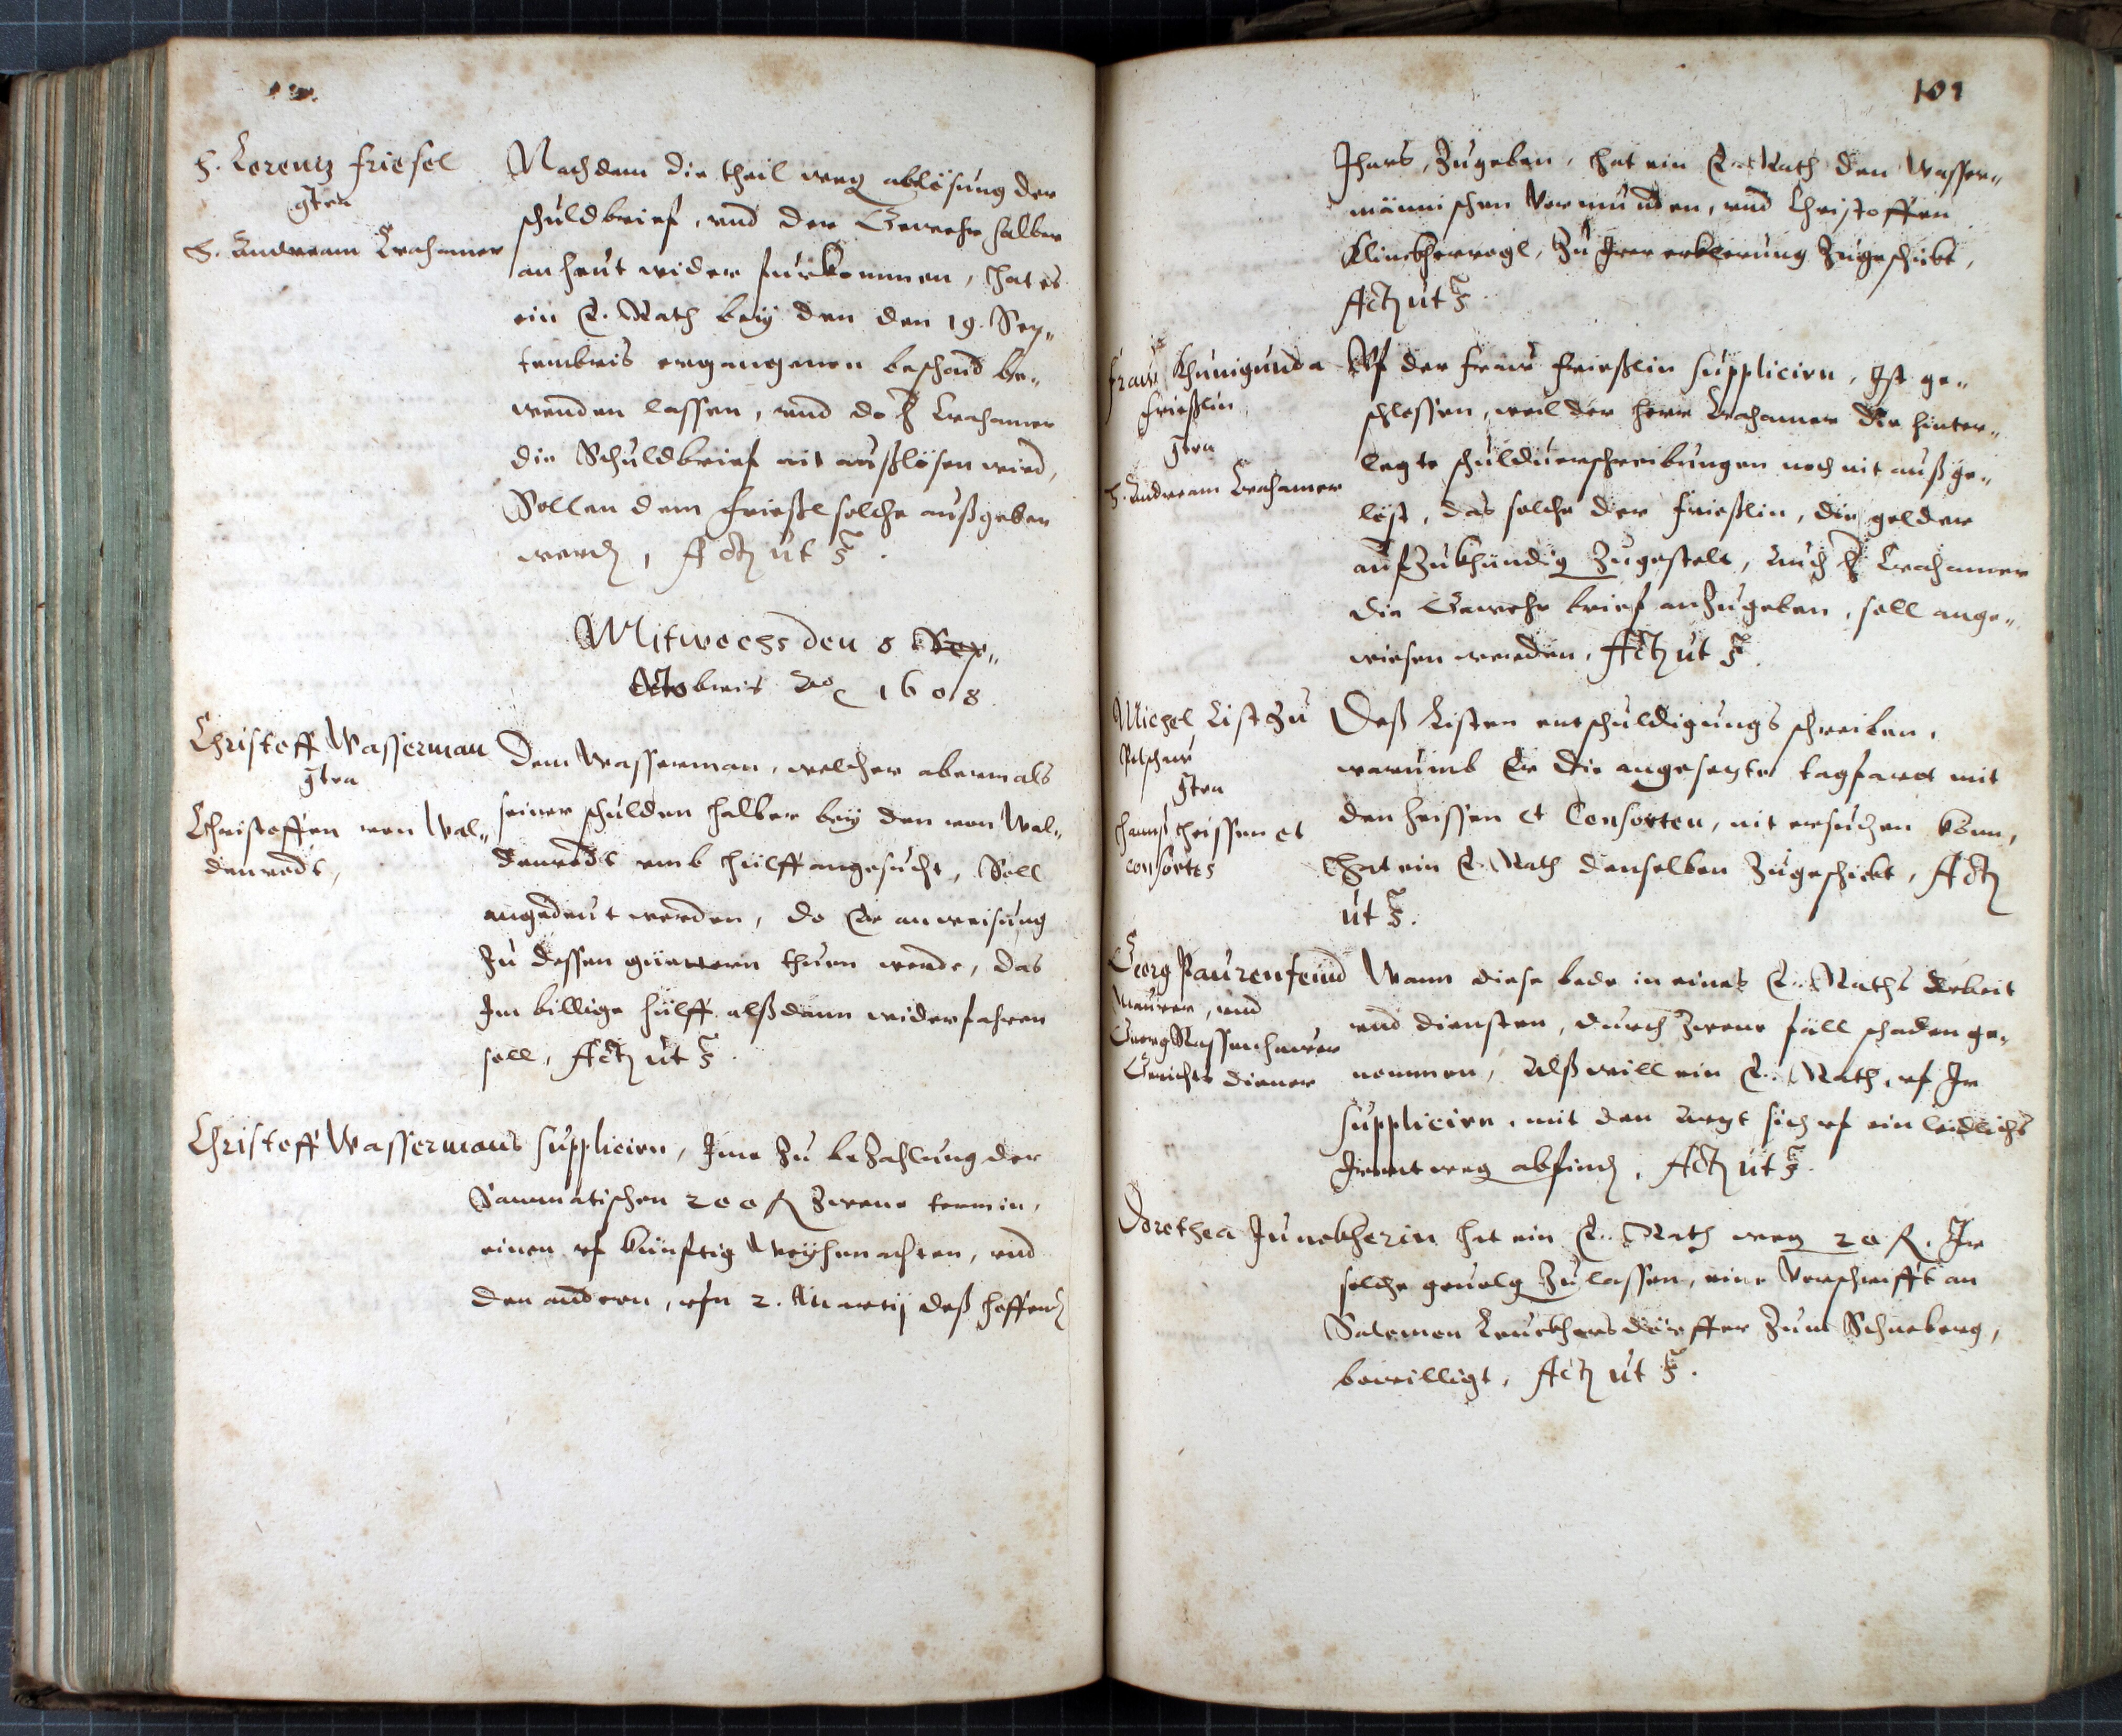 H. Lorentz Friesel
gten
H. Andream Crahamer
Nachdem die theil weg ablösung der
schuldbrief, vnd der Gewehr halber
an heut wider furkommen, hat es
ein E. Rath beÿ den den 19. Sep„
tembris ergangenen beschaid be„
wenden lassen, vnd do H Crahamer
die Schuldbrief nit außlösen wird,
Sollen dem Frießl solche außgeben
werdn, Actn ut s.
Mitwochs den 5 Sep„
Octobris Ao 1608
Christoff Wasserman
gten
Christoffen von Wal„
denrodt,
Dem Wasserman, welcher abermals
seiner schulden halber beÿ den von Wal„
denrodt vmb hülff angesucht, Soll
angedeut werden, do Er anweisung
Zu dessen güettern thuen werde, das
Im billige hülff alßdann widerfahren
soll, Actn ut s.
Christoff Wassermans supplicirn, Ime Zu beZahlung der
200 fl Zwene termin,
einen vf künftig Weÿhenachten, vnd
den andern, vfn 2. Martij deß
101
Jhars, Zugeben, hat ein E. Rath den Wasser„
männischen Vormünden, vnd Christoffen
Klinckhervogl, Zu Irer erklerung Zugeschickt,
Actn ut s.
Fraw Khunigunda
Frießlin
gten
H. Andream Crahamer
Vf der Fraw Frießlin supplicirn, Ist ge„
schlossen, weil der Herr Crahamer die hinter„
legte schulduerschreibungen noch nit außge„
löst, das solche der Frießlin, die gelder
aufZukhündig Zugestelt, Auch H Crahamer
die Gewehr brief anZugeben, soll ange„
wiesen werden, Actn ut s.
Michel List Zu
gten
Hannß Heissen et
consortes
Deß Listen entschuldigungs schreiben,
warumb Er die angesezte tagfart mit
den Heissen et Consorten, nit ersuchen könn,
Hat ein E. Rath denselben Zugeschickt, Actn
ut s.
Georg Paurenfeind
Maurer, vnd
Georg
Gerichts diener
Wann diese bede in eines E. Raths Arbeit
vnd diensten, durch Zwene fäll schaden ge„
nommen, Alß will ein E. Rath, vf Ir
supplicirn, mit den Arzt sich vf ein leidlichs
Irentweg abfindn, Actn ut s.
Dorothea Junckherin hat ein E. Rath weg 20 fl. Ir
solche geuolg Zulassen, eine Vorschrifft an
Salomon Leuckhersdörffer Zum Schneberg,
bewilligt, Actn ut s.